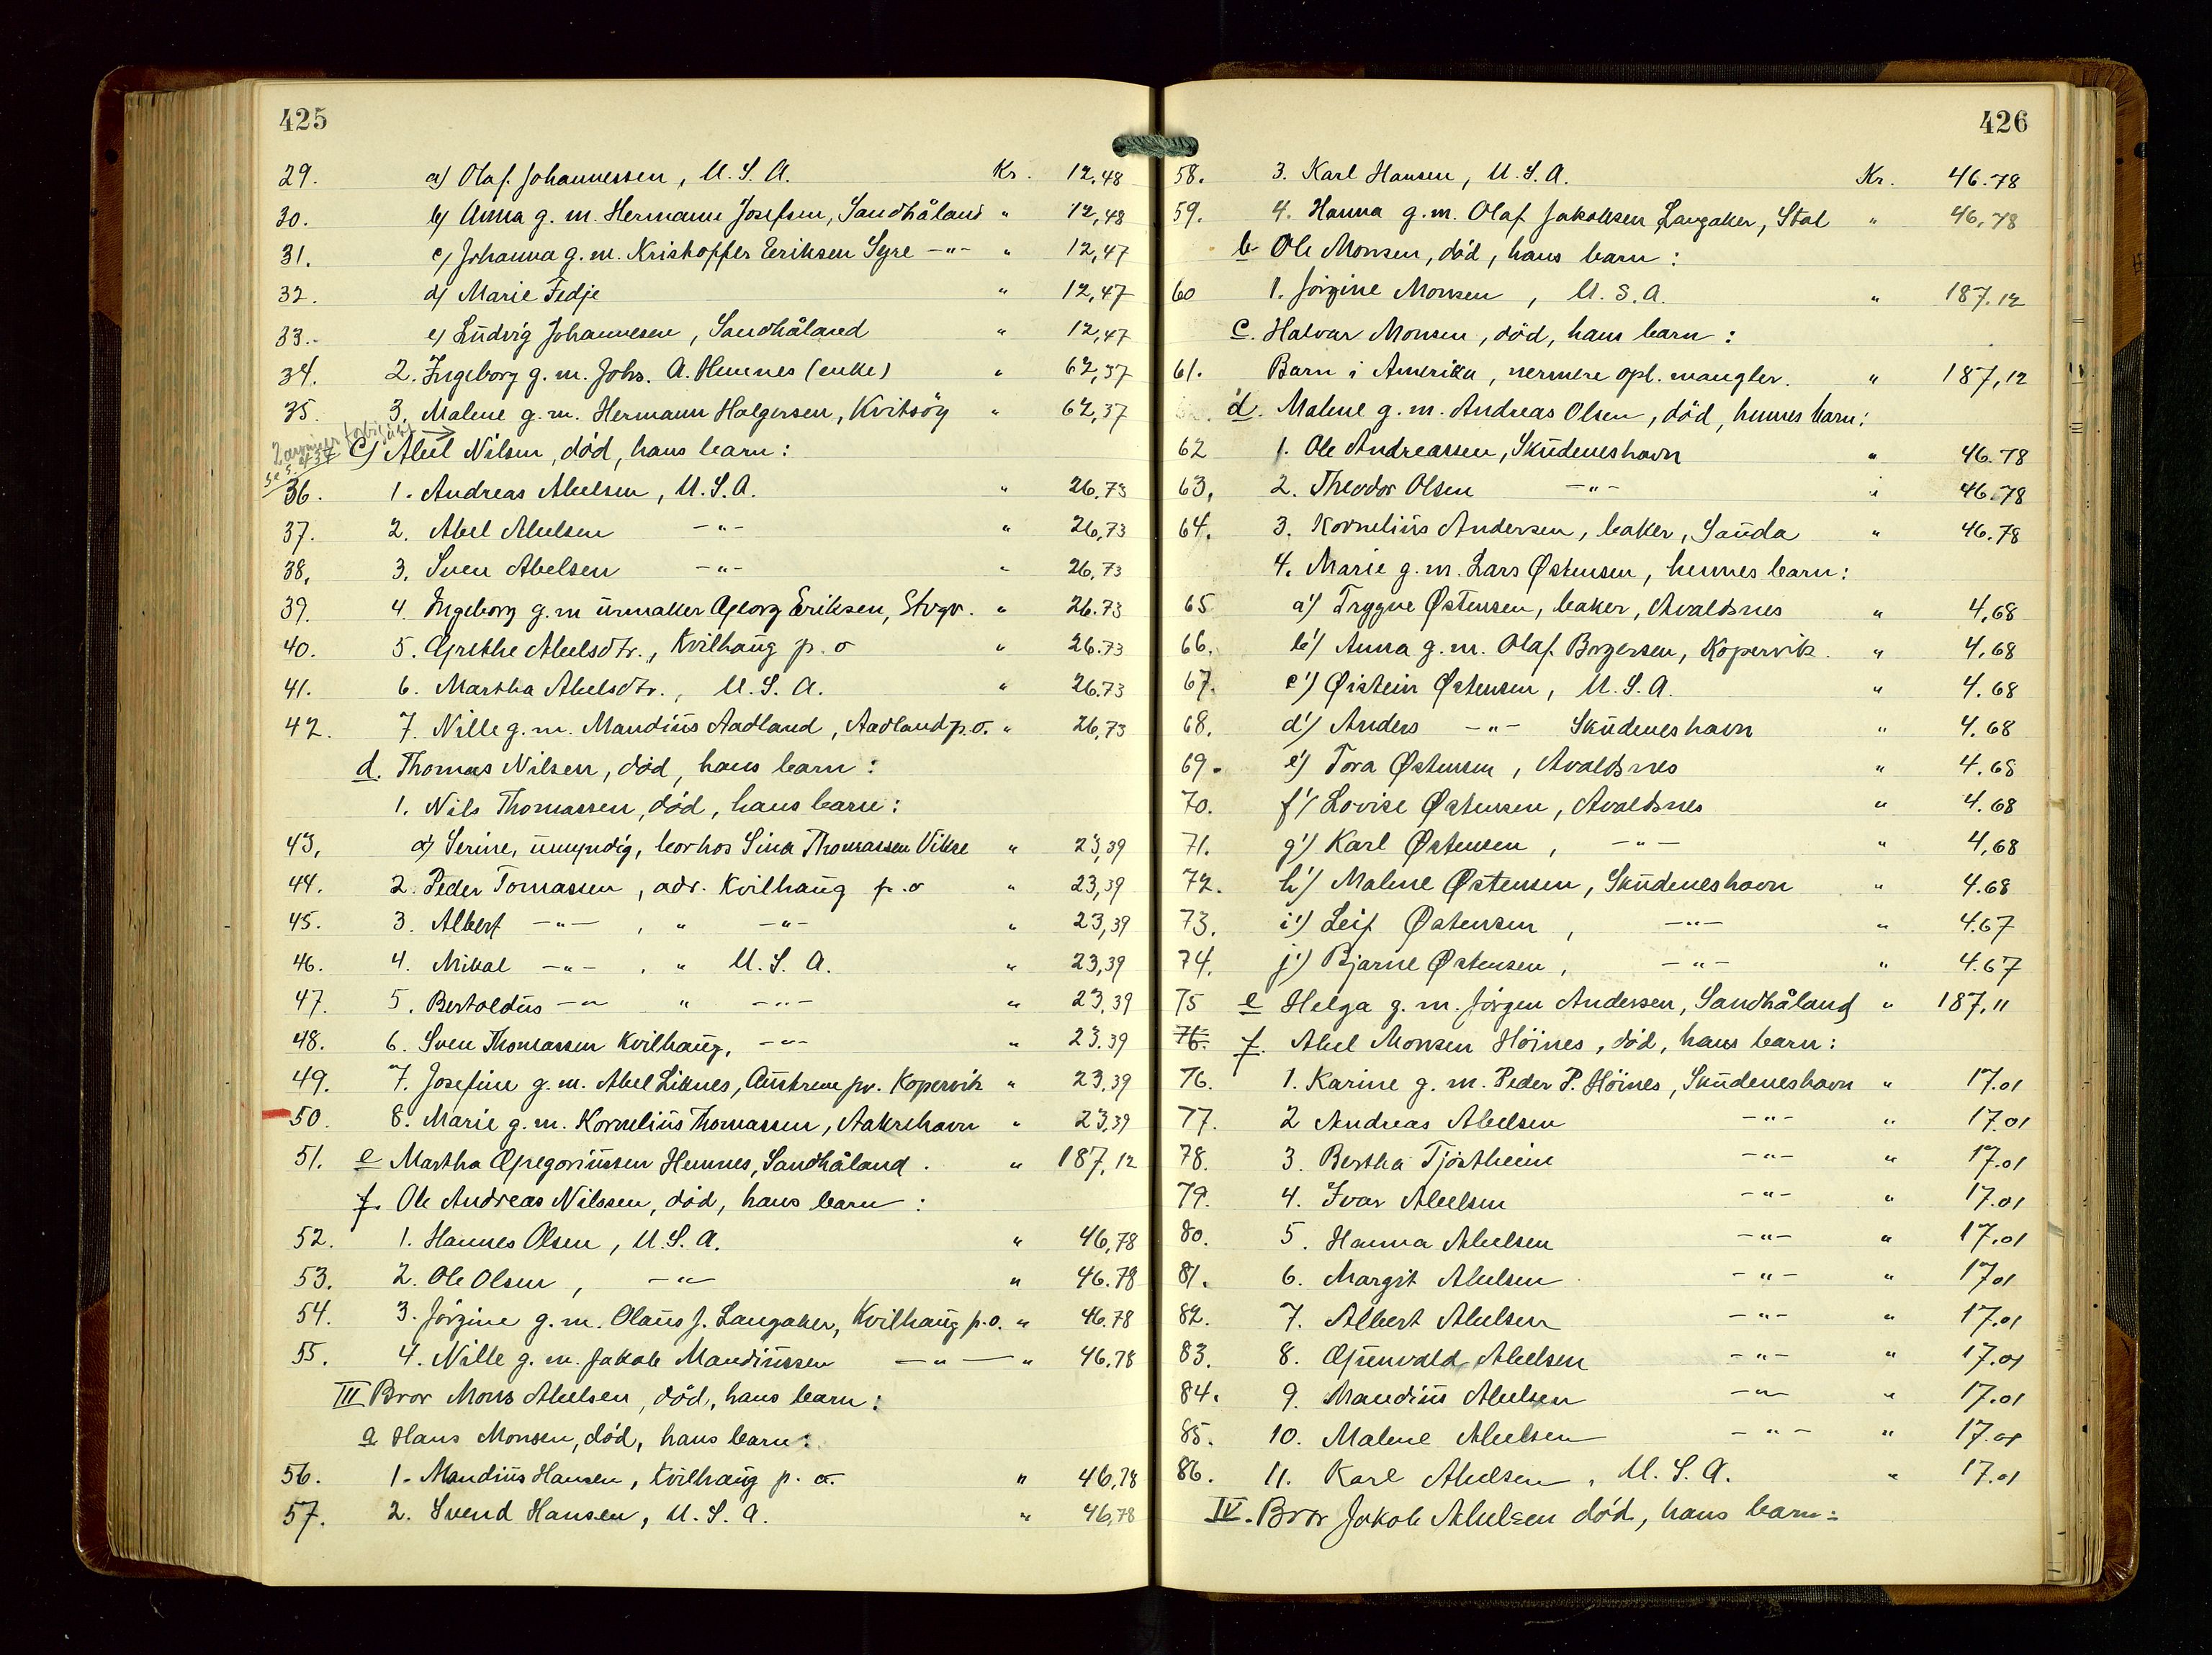 425
29. a) Olaf Johannessen, U.S.A. Kr. 12,48
30. b) Anna g.m. Hermann Josefsen, Sandhåland " 12,48
31. c) Johanna g.m. Kristoffer Eeriksen Syre -"- " 12,47
32. d) Marie Fedje " 12,47
33. e) Ludvig Johannesen, Sandhåland " 12,47
34. 2. Ingeborg g.m. Johs. A. Hemnes (enke) " 62,37
35. 3. Malene g.m. Hermann Holgersen, Kvitsöy " 62,37
2 arvinger forbigått
se s. 437
c) Abel Nilsen, död, hans barn:
36. 1. Andreas Abelsen, U.S.A. " 26.73
37. 2. Abel Abelsen -"- " 26,73
38, 3. Sven Abelsen -"- " 26,73
39. 4. Ingeborg g.m urmaker Georg Eriksen, Stvgr. " 26.73
40. 5. Grethe Abelsdtr., Kvilhaug p.o " 26.73
41. 6. Martha Abelsdtr., U.S.A. " 26.73
42. 7. Nille g.m. Mandius Aadland, Aadland p.o. " 26,73
d. Thomas Nilsen, död, hans barn:
1. Nils Thomassen, död, hans barn:
43, a) Serine, umyndig, bor hos Sina Thomassen Vikse " 23,39
44. 2. Peder Tomassen, adr. Kvilhaug p.o " 23,39
45. 3. Albert -"- , " -"- " 23,39
46. 4. Mikal -"- , " U.S.A. " 23,39
47. 5. Bertoldus -"- " -"- " 23,39
48. 6. Sven Thomassen Kvilhaug, -"- " 23.39
49. 7. Josefine g.m. Abel Liknes, Austreue pr. Kopervik " 23,39
50. 8. Marie g.m. Kornelius Thomassen, Aakrehavn " 23,39
51. e Martha Gregoriussen Hemnes, Sandhåland. " 187,12
f. Ole Andreas Nilssen, död, hans barn:
52. 1. Hannes Olsen, U.S.A. " 46,78
53. 2. Ole Olsen, -"- " 46.78
54. 3. Jörgine g.m. Olaus J. Langaker, Kvilhaug p.o. " 46.78
55. 4. Nille g.m. Jakob Mandiussen -"- " 46,78
III Bror Mons Abelsen, död, hans barn:
a Hans Monsen, död, hans barn:
56. 1. Mandius Hansen, Kvilhaug p.o. " 46,78
57. 2. Svend Hansen, U.S.A. " 46,78
426
58. 3. Karl Hansen, U.S.A. Kr. 46.78
59. 4. Hanna g.m. Olaf Jakobsen Langaker, Stol " 46,78
b Ole Monsen, död, hans barn:
60 1. Jörgine Monsen, U.S.A. " 187,12
c. Halvar Monsen, död, hans barn:
61. Barn i Amerika, nermere opl. mangler. " 187,12
d. Malene g.m. Andreas Olsen, död, hennes barn:
62 1. Ole Andreassen, Skudeneshavn " 46.78
63, 2. Theodor Olsen -"- " 46.78
64. 3. Kornelius Andersen, baker, Sauda " 46.78
4. Marie g.m. Lars Østensen, hennes barn:
65 a') Trygve Østensen, baker, Avaldsnes " 4,68
66. b') Anna g.m. Olaf Borgersen, Kopervik. " 4,68
67. c') Øistein Østensen, U.S.A. " 4.68
68. d') Anders -"- Skudeneshavn " 4.68
69. e') Tora Østensen, Avaldsnes " 4.68
70. f') Lovise Østensen, Avaldsnes " 4.68
71. g') Karl Østensen, -"- " 4,68
72. h') Malene Østensen, Skudeneshavn " 4.68
73. i') Leif Østensen, -"- " 4.67
74. j') Bjarne Østensen, -"- " 4.67
75 e Helga g.m. Jörgen Andersen, Sandhåland " 187,11
76. f. Abel Monsen Höines, död, hans barn:
76. 1. Karine g.m. Peder P. Höines, Skudeneshavn " 17.01
77. 2 Andreas Abelsen -"- " 17.01
78. 3. Bertha Tjöstheim -"- " 17.01
79. 4. Ivar Abelsen -"- " 17.01
80. 5. Hanna Abelsen -"- " 17.01
81. 6. Margit Abelsen -"- " 17.01
82. 7. Albert Abelsen -"- " 17.01
83. 8. Gunvald Abelsen -"- " 17.01
84. 9. Mandius Abelsen -"- " 17.01
85. 10. Malene Abelsen -"- " 17.01
86. 11. Karl Abelsen, U.S.A. " 17.01
IV. Bror Jakob Abelsen död, hans barn: